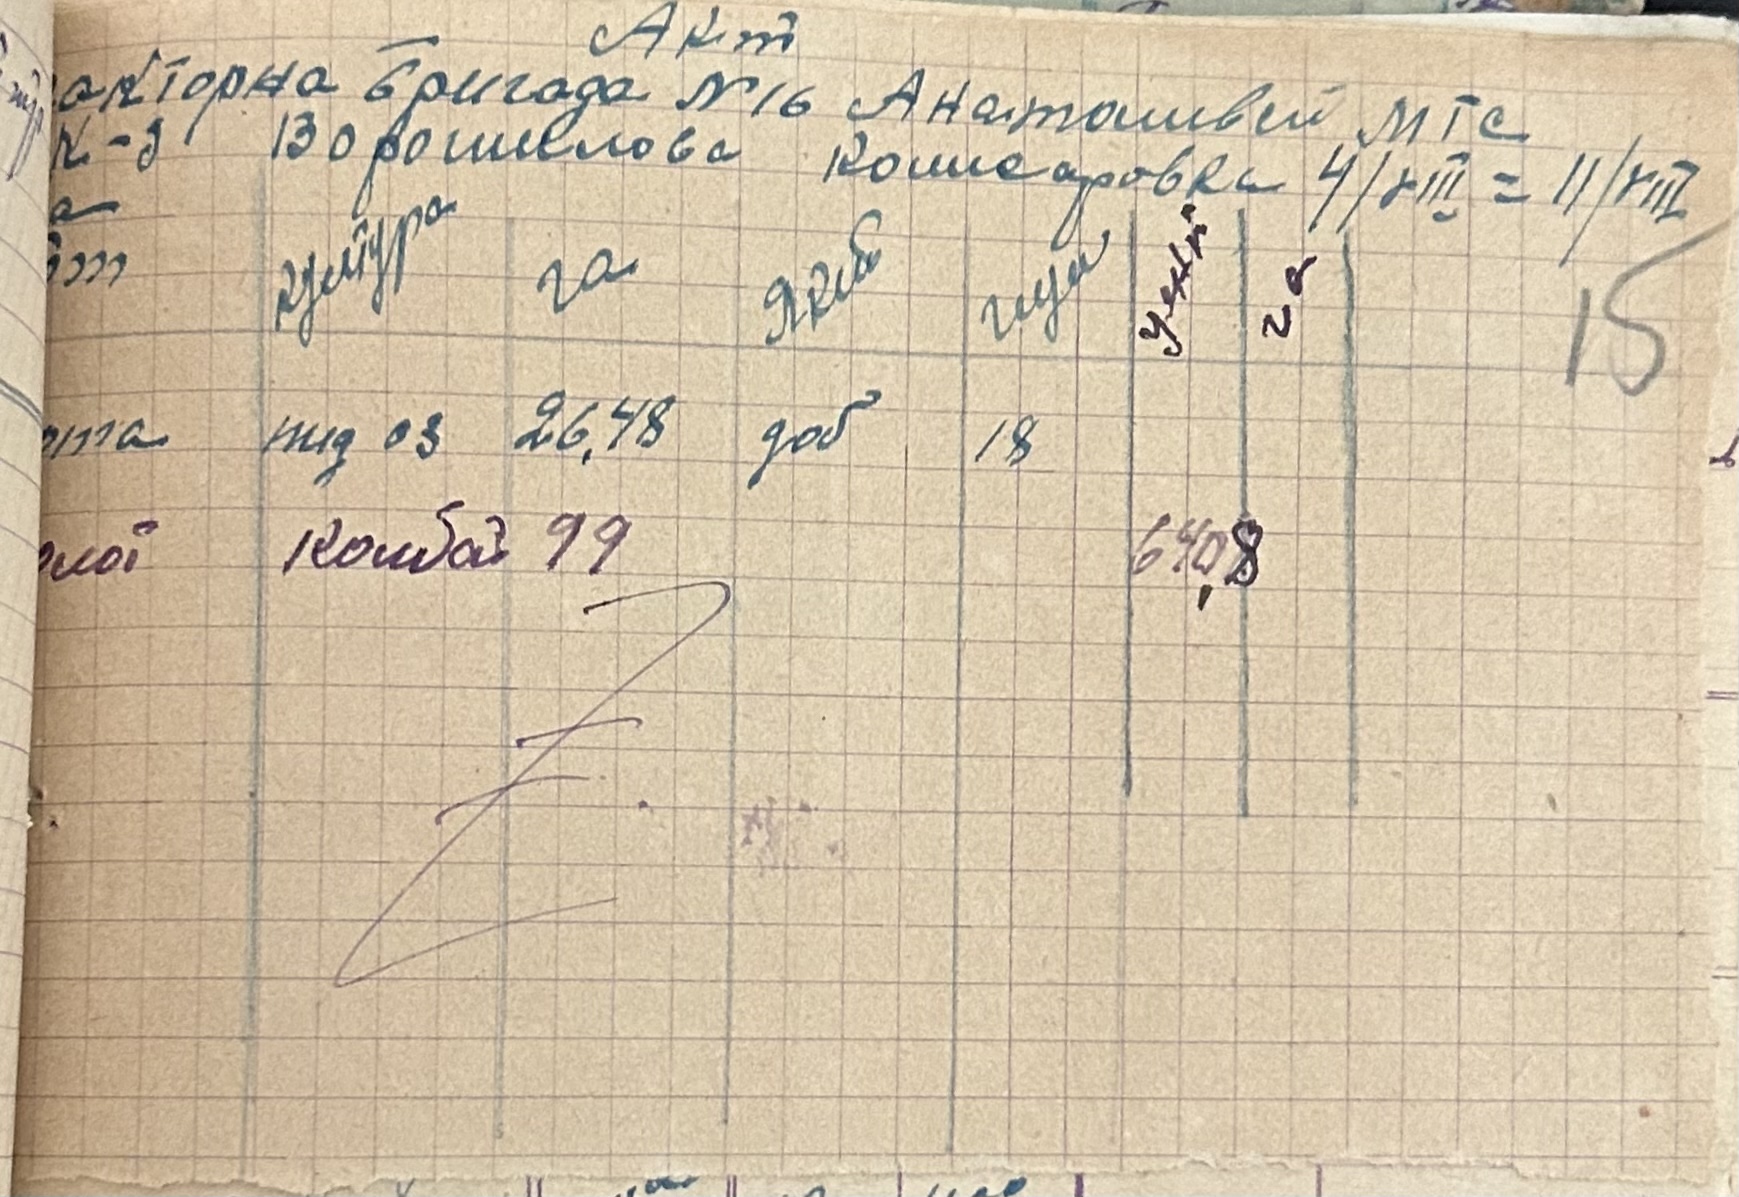 Акт
акторна бригада № 16 Анатолівсй МТС
К-з Ворошилова Комисаровка 4/VIII = 11/VIII
а
культура га Якіс глуб центн га
15
під оз 26,48 доб 18
Комбай 99 640,8